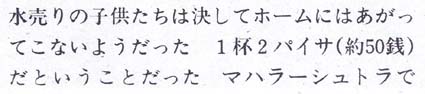 水売りの子供たちは決してホームにはあがっ
てこないようだった　1杯2パイサ(約50銭)
だということだった　マハラーシュトラで